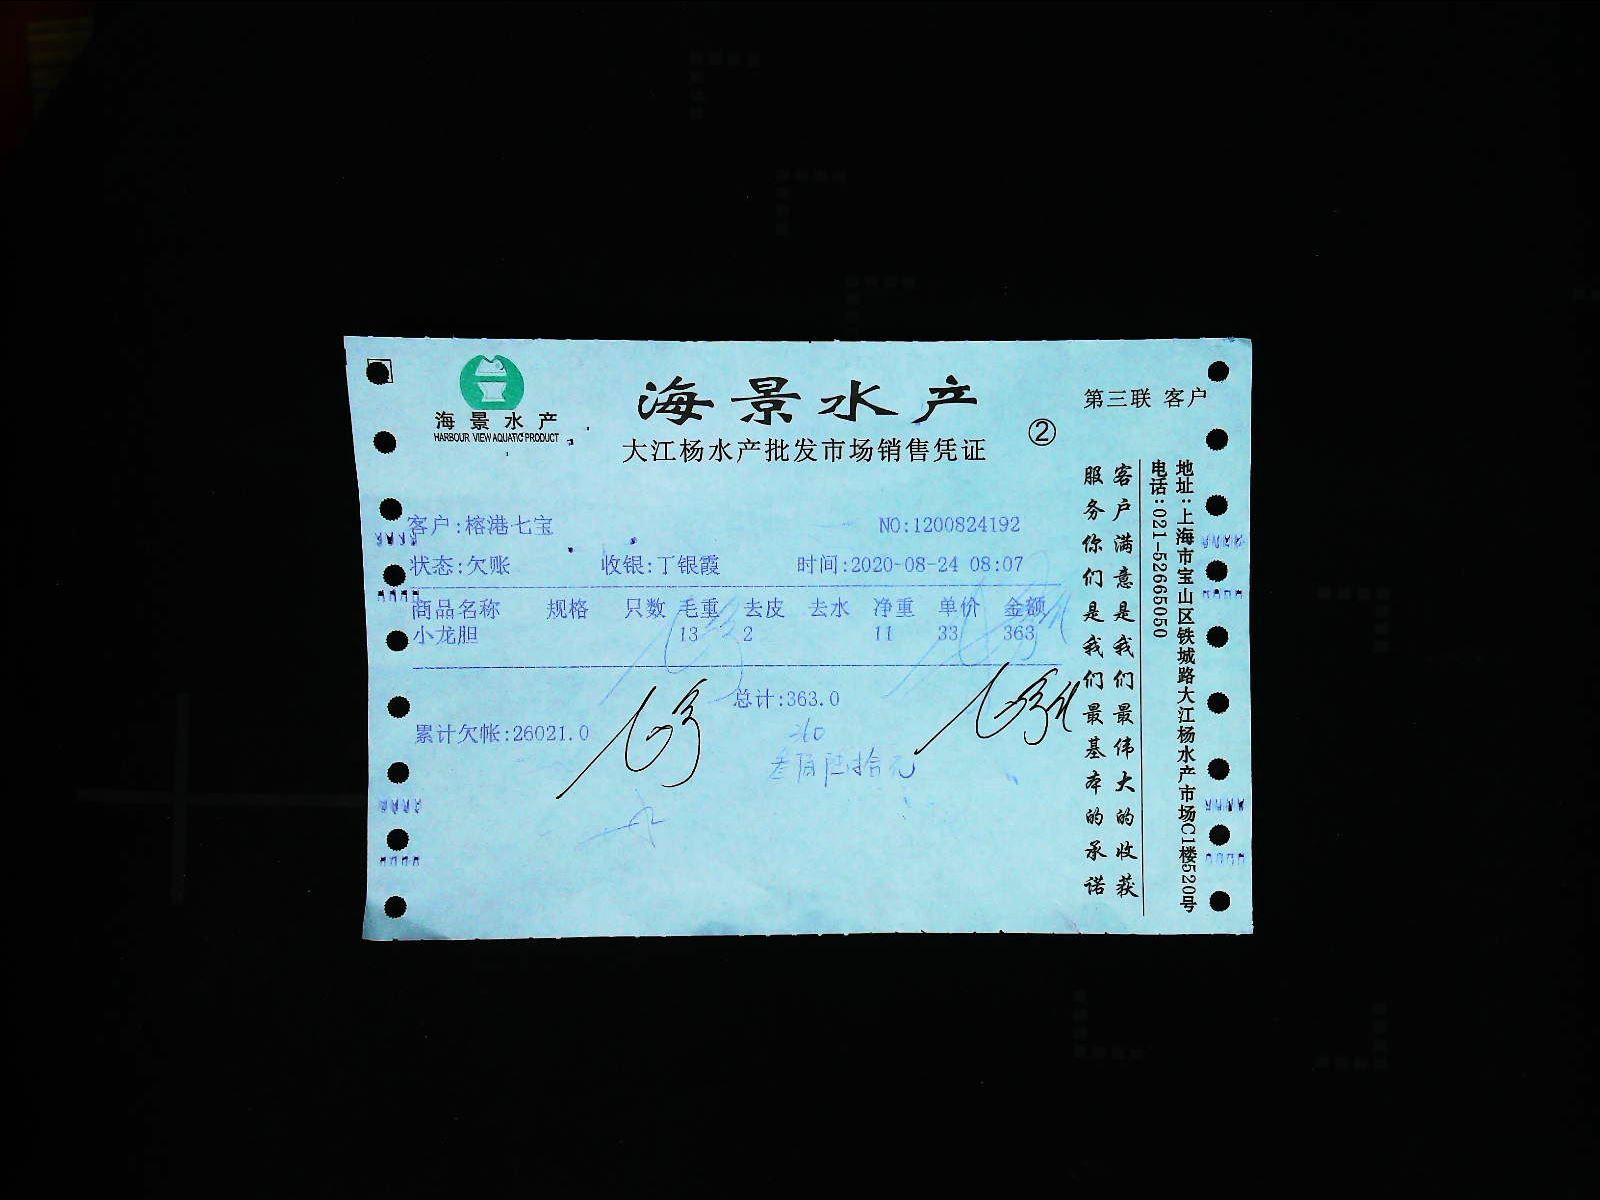 海景水产
HARBOUR VIEW AQUATIC PRODUCT
海景水产
大江杨水产批发市场销售凭证
②
第三联 客户
客户:榕港七宝 NO:1200824192
状态:欠账 收银:丁银霞 时间:2020-08-24 08:07
商品名称 规格 只数 毛重 去皮 去水 净重 单价 金额
小龙胆 13 2 11 33 363
总计:363.0
累计欠帐:26021.0
360
叁佰陆拾元
客户满意是我们最伟大的收获
服务你们是我们最基本的承诺
地址:上海市宝山区铁城路大江杨水产市场C1楼520号
电话:021-52665050